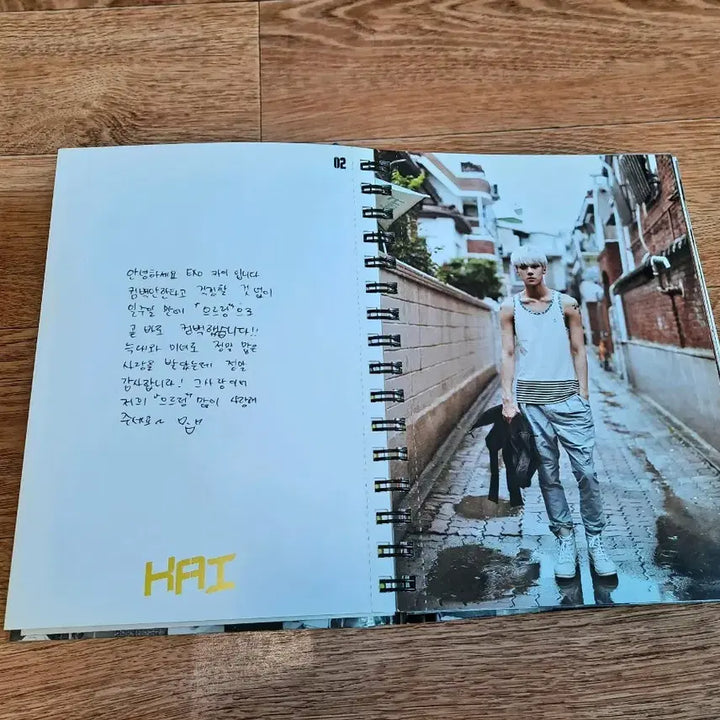 02
안녕하세요 EXO 카이 입니다
컴백안한다고 걱정할 건 없이
일주일 만에 "으르렁"으로
곧 바로 컴백했습니다!!
늑대와 미녀로 정말 많은
사랑을 받았는데 정말
감사합니다! 그사랑이어
저희 "으르렁" 많이 사랑해
주세요~
KAI